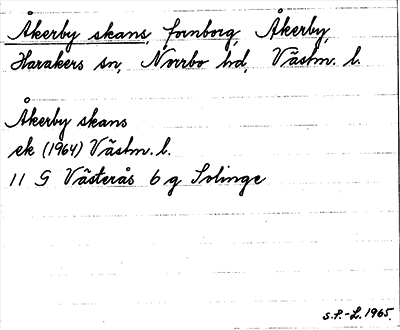 Åkerby skans, fornborg, Åkerby,
Harakers sn, Norrbo hd, Västm. l.
Åkerby skans
ek (1964) Västm. l.
11 G Västerås 6 g Solinge
S.P.-L. 1965.